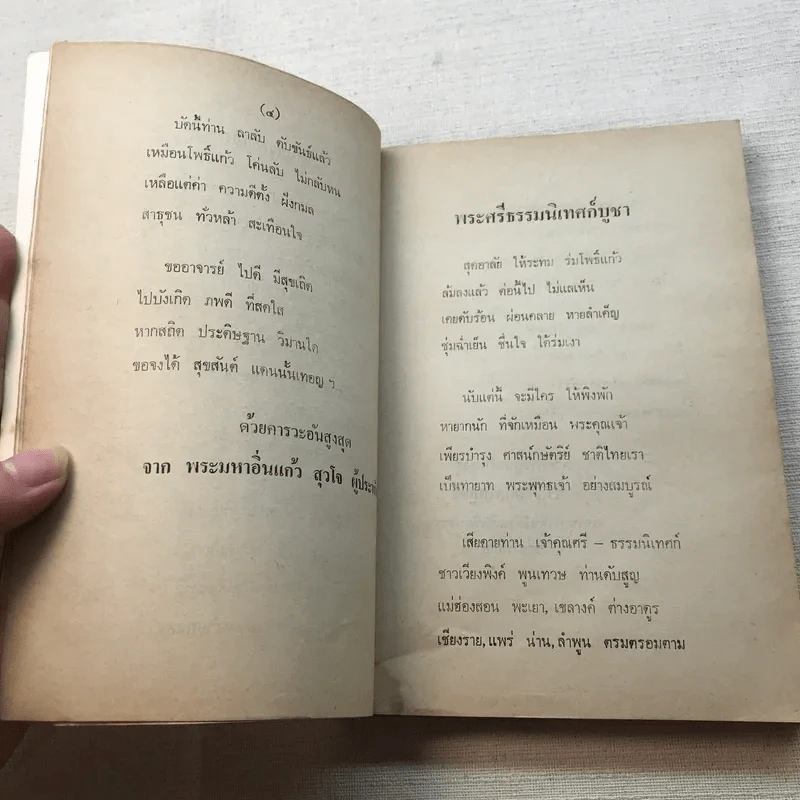 (๔)
บัดนี้ท่าน ลาลับ ดับขันธ์แล้ว
เหมือนโพธิ์แก้ว โค่นลับ ไม่กลับหน
เหลือแต่ค่า ความดีตั้ง ฝังกมล
สาธุชน ทั่วหล้า สะเทือนใจ
ขออาจารย์ ไปดี มีสุขเถิด
ไปบังเกิด ภพดี ที่สดใส
หากสถิต ประดิษฐาน วิมานใด
ขอจงได้ สุขสันต์ แดนนั้นเทอญ ฯ
ด้วยคารวะอันสูงสุด
จาก พระมหาอิ่นแก้ว สุวโจ
พระศรีธรรมนิเทศก์บูชา
สุดอาลัย ให้ระทม ร่มโพธิ์แก้ว
ล้มลงแล้ว ต่อนี้ไป ไม่แลเห็น
เคยดับร้อน ผ่อนคลาย หายลำเค็ญ
ชุ่มฉ่ำเย็น ชื่นใจ ใต้ร่มเงา
นับแต่นี้ จะมีใคร ให้พึงพัก
หายากนัก ที่จักเหมือน พระคุณเจ้า
เพียรบำรุง ศาสน์กษัตริย์ ชาติไทยเรา
เป็นทายาท พระพุทธเจ้า อย่างสมบูรณ์
เสียดายท่าน เจ้าคุณศรี – ธรรมนิเทศก์
ชาวเวียงพิงค์ พูนเทวษ ท่านดับสูญ
แม่ฮ่องสอน พะเยา, เขลางค์ ต่างอาดูร
เชียงราย, แพร่ น่าน, ลำพูน ตรมตรอมตาม